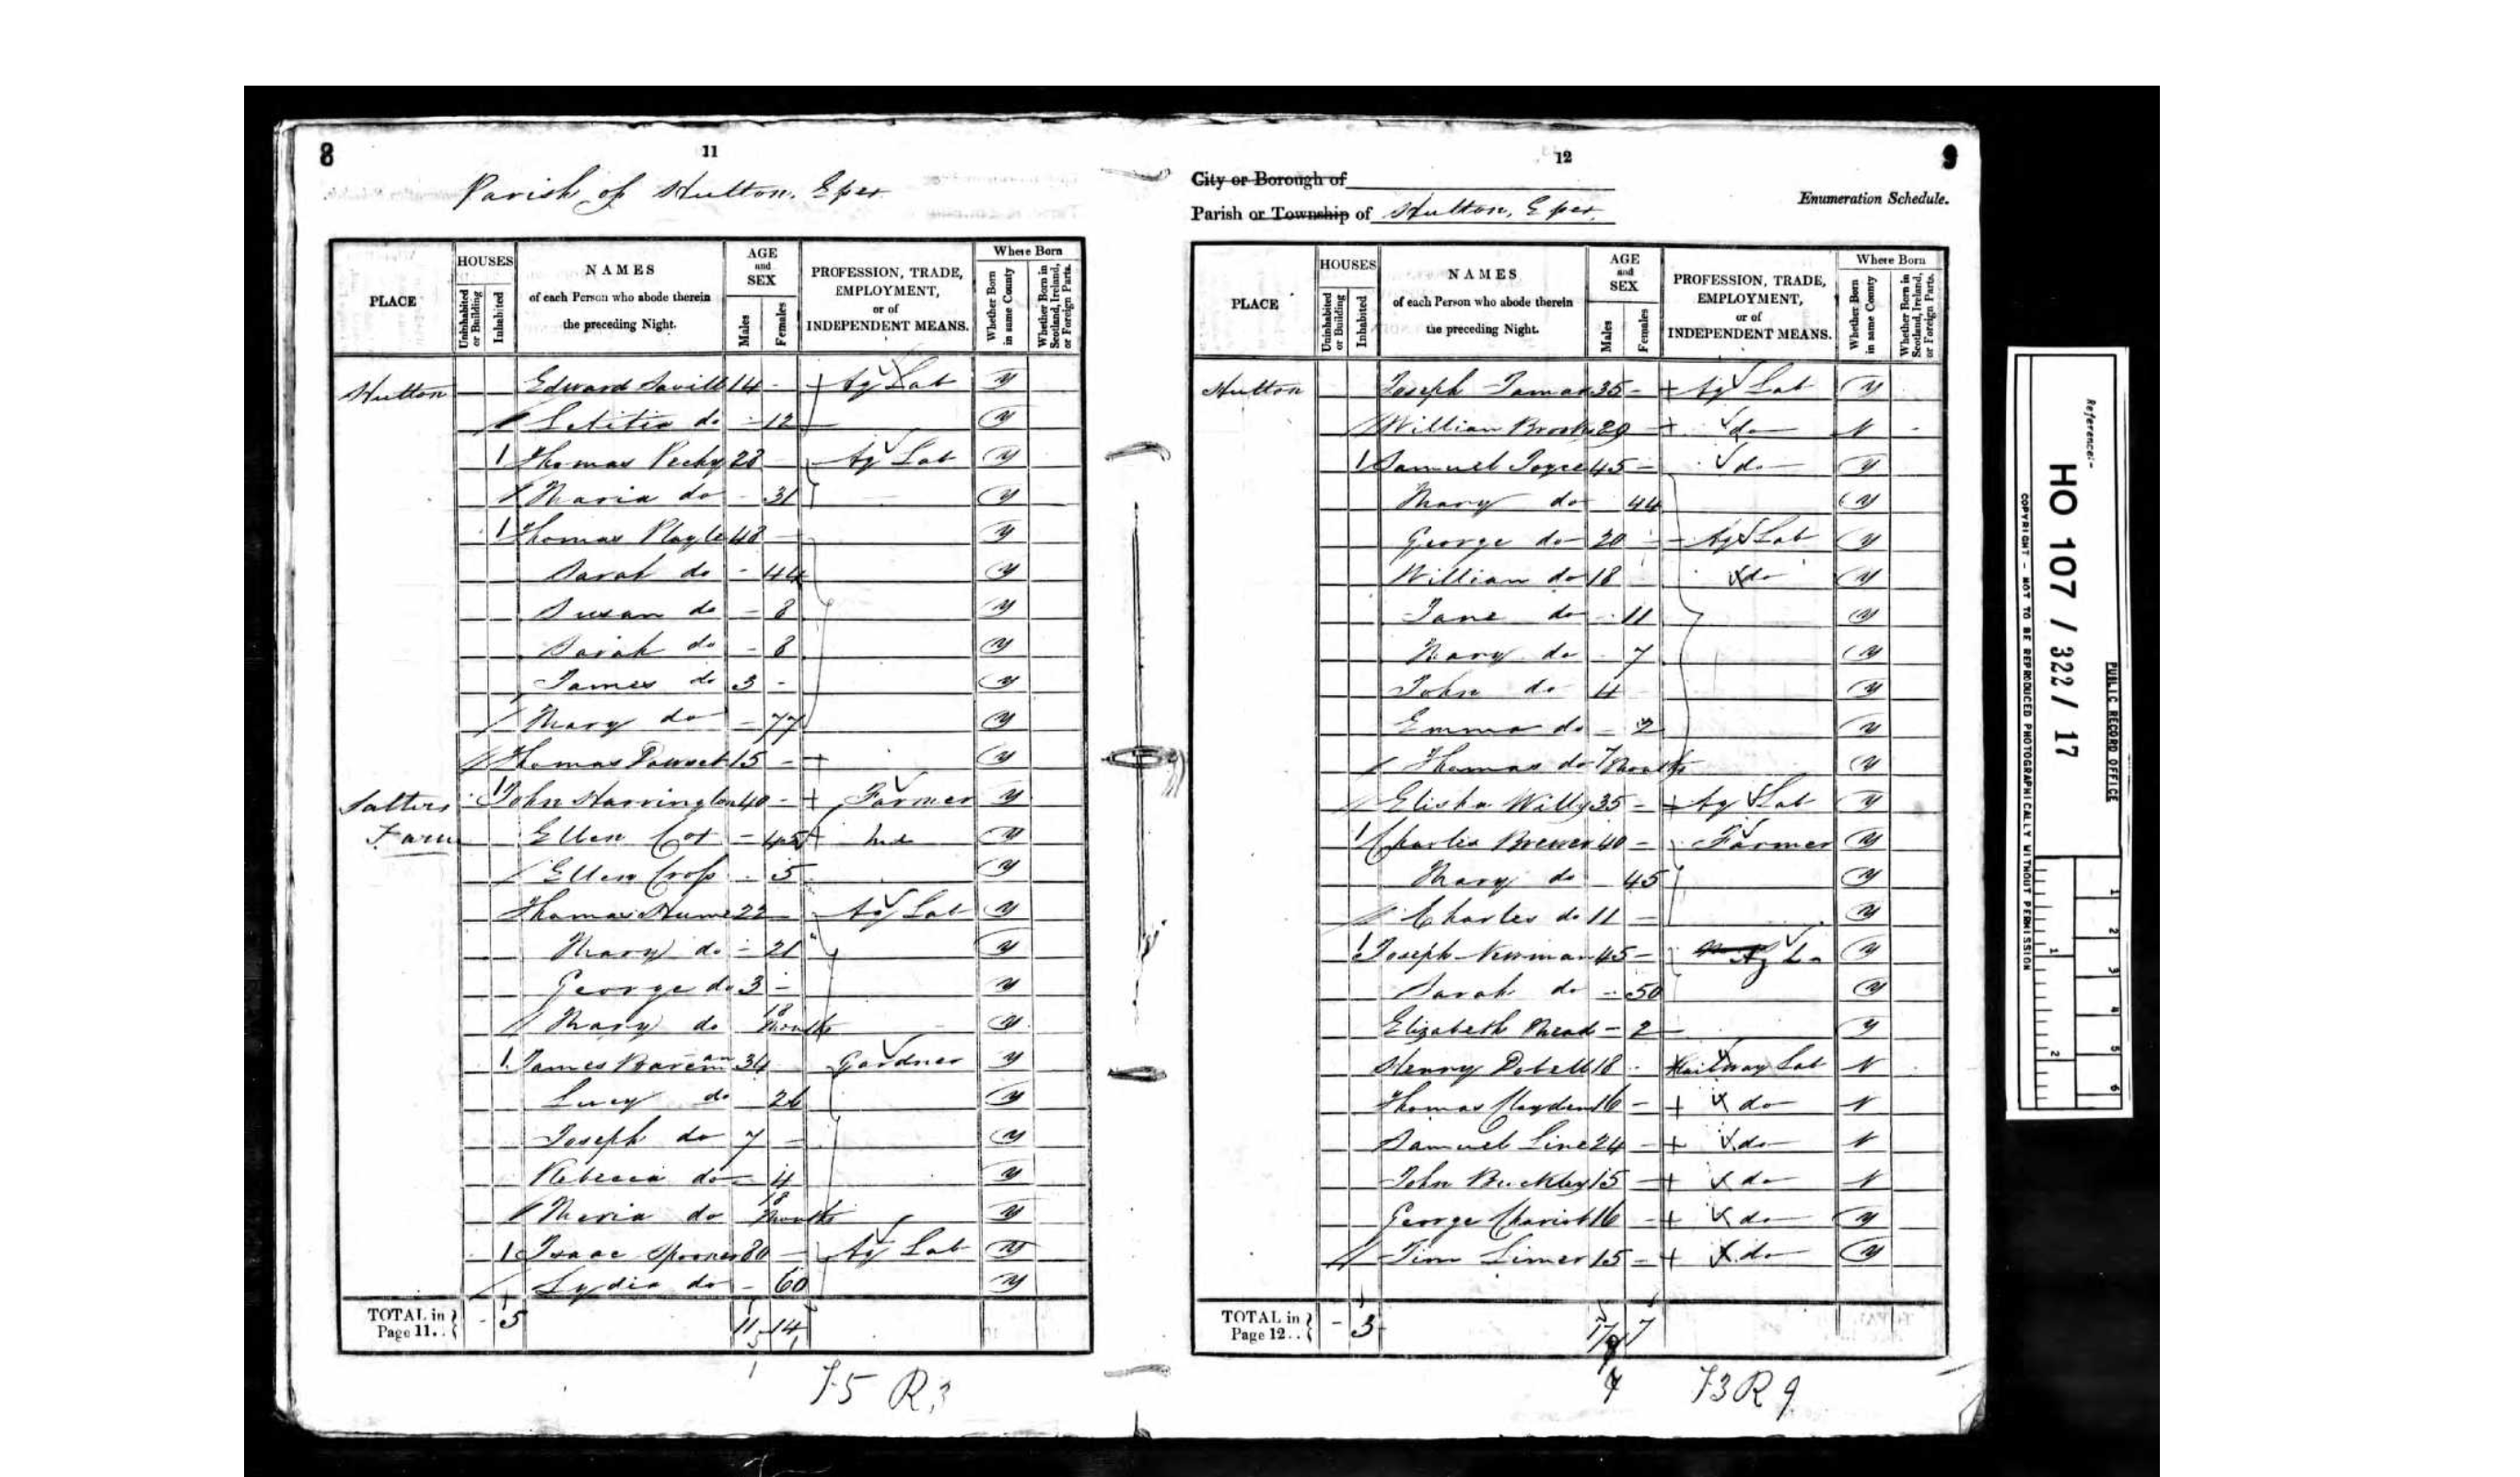 8
11
Parish of Hutton. Essex
PLACE
HOUSES
Uninhabited or Building
Inhabited
NAMES
of each Person who abode therein
the preceding Night.
AGE
and
SEX
Males
Females
PROFESSION, TRADE,
EMPLOYMENT,
or of
INDEPENDENT MEANS.
Where Born
Whether Born in same County
Whether Born in Scotland, Ireland, or Foreign Parts.
Hutton Edward Savill 14 - Ag Lab y
Letitia do - 12 y
1 Thomas 28 Ag Lab y
Maria do - 31 y
1 Thomas Playle 48 - y
Sarah do - 44 y
Susan do - 8 y
Sarah do - 8 y
James do 3 - y
Mary do - 77 y
Thomas 15 - y
Salters 1 John Harrington 40 - Farmer y
Farm Ellen Cot - 45 Ind y
Ellen Cross - 5 y
Thomas Hume 22 - Ag Lab y
Mary do - 21 y
George do 3 - y
Mary do 18 Months y
1 James 34 Gardner y
Lucy do 26 y
Joseph do 7 - y
Rebecca do - 4 y
Maria do 18 Months y
1 Isaac Spooner 80 - Ag Lab y
Lydia do - 60 y
TOTAL in
Page 11.. - 5 11 14
F5 R3
12
9
City or Borough of
Enumeration Schedule.
Parish or Township of Hutton, Essex
PLACE
HOUSES
Uninhabited or Building
Inhabited
NAMES
of each Person who abode therein
the preceding Night.
AGE
and
SEX
Males
Females
PROFESSION, TRADE,
EMPLOYMENT,
or of
INDEPENDENT MEANS.
Where Born
Whether Born in same County
Whether Born in Scotland, Ireland, or Foreign Parts.
Hutton Joseph 35 - Ag Lab y
William Brooks 20 - do N -
1 Samuel Joyce 45 - do y
Mary do 44 y
George do 20 - Ag Lab y
William do 18 do y
Jane do - 11 y
Mary do - 7 y
John do 4 y
Emma do - 2 y
Thomas do 7 Months y
Elisha Willy 35 - Ag Lab y
1 Charles Brewer 40 - Farmer y
Mary do 45 y
Charles do 11 - y
1 Joseph Newman 45 - Ag La y
Sarah do - 50 y
Elizabeth Mead - 2 y
Henry Dobell 18 - Railway Lab N
Thomas Clayden 16 - do N
Samuel Line 24 - do N
John Buckley 15 - do N
George Chariot 16 - do y
Jim Limer 15 - do y
TOTAL in
Page 12.. - 3 17 7
7
F3 R9
Reference:-
HO 107 / 322 / 17
PUBLIC RECORD OFFICE
COPYRIGHT - NOT TO BE REPRODUCED PHOTOGRAPHICALLY WITHOUT PERMISSION
1
2
3
4
5
6
1
2